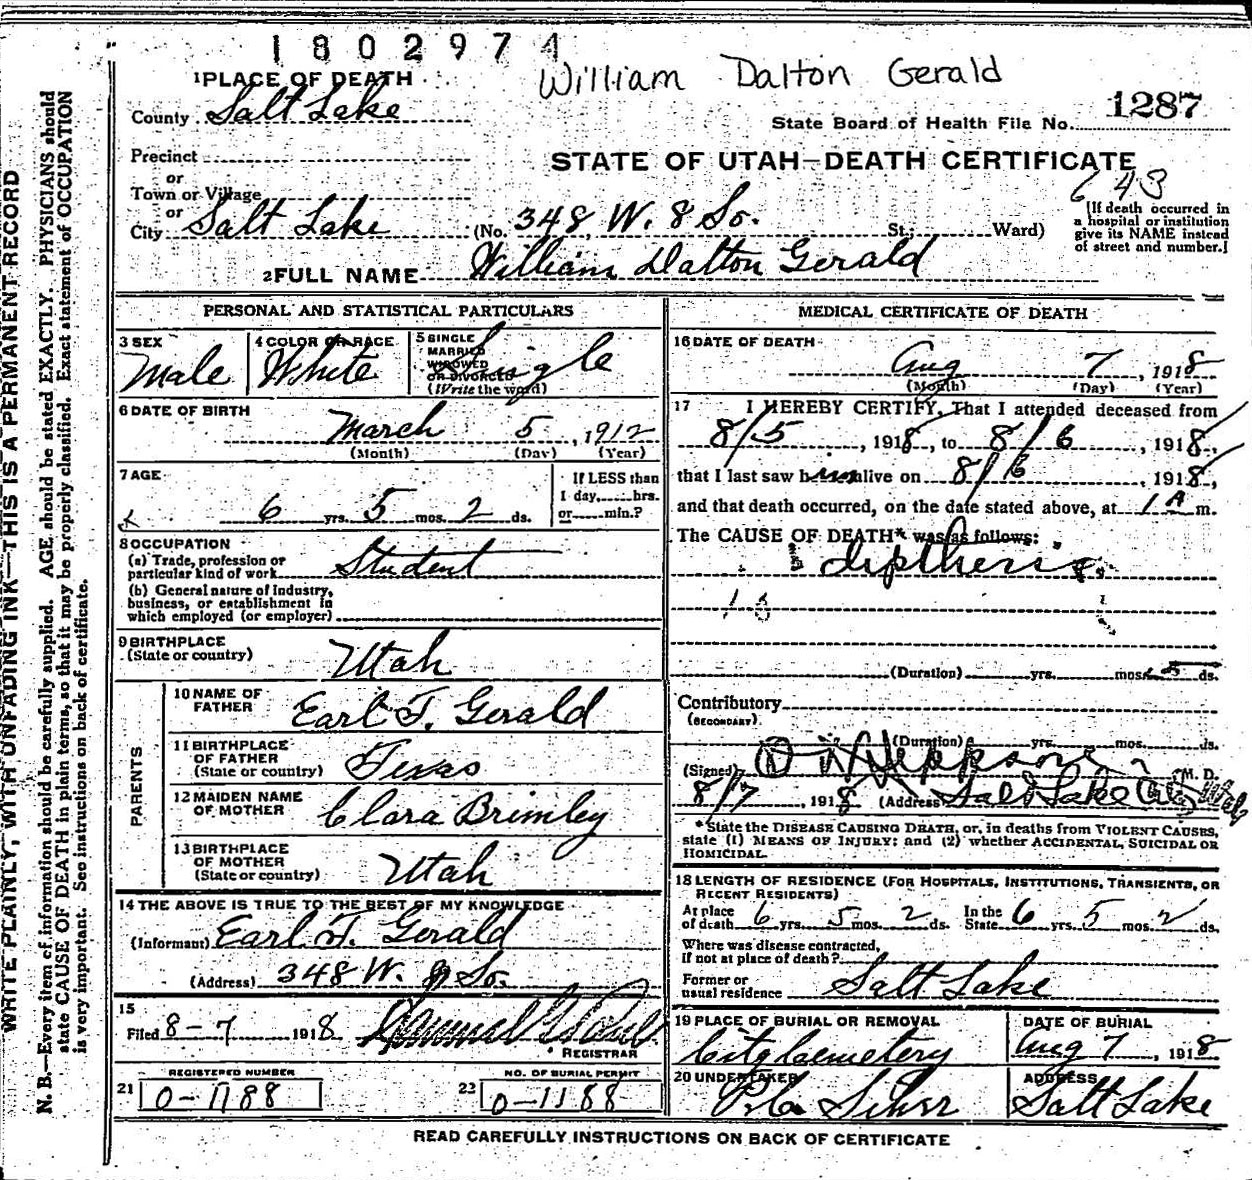 1802974
William Dalton Gerald
1287
State Board of Health File No.
STATE OF UTAH—DEATH CERTIFICATE
643
1 PLACE OF DEATH
County Salt Lake
Precinct
or
Town or Village
or
City Salt Lake (No. 348 W. 8 So. St.; Ward)
[If death occurred in
a hospital or institution
give its NAME instead
of street and number.]
2 FULL NAME William Dalton Gerald
PERSONAL AND STATISTICAL PARTICULARS
3 SEX
Male
4 COLOR OR RACE
White
5 SINGLE
MARRIED
WIDOWED
OR DIVORCED
(Write the word)
Single
6 DATE OF BIRTH
March 5, 1912
(Month) (Day) (Year)
7 AGE
6 yrs. 5 mos. 2 ds.
If LESS than
1 day, hrs.
or min.?
8 OCCUPATION
(a) Trade, profession or
particular kind of work Student
(b) General nature of Industry,
business, or establishment in
which employed (or employer)
9 BIRTHPLACE
(State or country) Utah
PARENTS
10 NAME OF
FATHER Earl T. Gerald
11 BIRTHPLACE
OF FATHER
(State or country) Texas
12 MAIDEN NAME
OF MOTHER Clara Brimley
13 BIRTHPLACE
OF MOTHER
(State or country) Utah
14 THE ABOVE IS TRUE TO THE BEST OF MY KNOWLEDGE
(Informant) Earl T. Gerald
(Address) 348 W. 8 So.
15
Filed 8-7 1918
REGISTRAR
21 REGISTERED NUMBER
0-1188
22 NO. OF BURIAL PERMIT
0-1188
MEDICAL CERTIFICATE OF DEATH
16 DATE OF DEATH
Aug 7, 1918
(Month) (Day) (Year)
17 I HEREBY CERTIFY, That I attended deceased from
8/5, 1918, to 8/6, 1918,
that I last saw him alive on 8/6, 1918,
and that death occurred, on the date stated above, at 1 A m.
The CAUSE OF DEATH* was as follows:
diptheria
(Duration) yrs. mos. 5 ds.
Contributory
(SECONDARY)
(Duration) yrs. mos. ds.
(Signed) Jeppson M. D.
8/7, 1918 (Address) Salt Lake City Utah
*State the DISEASE CAUSING DEATH, or, in deaths from VIOLENT CAUSES,
state (1) MEANS OF INJURY; and (2) whether ACCIDENTAL, SUICIDAL OR
HOMICIDAL.
18 LENGTH OF RESIDENCE (FOR HOSPITALS, INSTITUTIONS, TRANSIENTS, OR
RECENT RESIDENTS)
At place of death 6 yrs. 5 mos. 2 ds. In the State 6 yrs. 5 mos. 2 ds.
Where was disease contracted,
if not at place of death?
Former or
usual residence Salt Lake
19 PLACE OF BURIAL OR REMOVAL
City Cemetery
DATE OF BURIAL
Aug 7, 1918
20 UNDERTAKER
ADDRESS
Salt Lake
READ CAREFULLY INSTRUCTIONS ON BACK OF CERTIFICATE
WRITE PLAINLY, WITH UNFADING INK—THIS IS A PERMANENT RECORD
N. B.—Every item of information should be carefully supplied. AGE should be stated EXACTLY. PHYSICIANS should
state CAUSE OF DEATH in plain terms, so that it may be properly classified. Exact statement of OCCUPATION
is very important. See instructions on back of certificate.